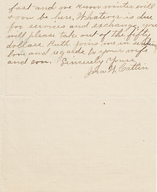 fast and we know winter will
soon be here. Whatever is due
for services and exchange, you
will please take out of the fifty
dollars. Ruth joins me in
love and regards to your wife
and son. Sincerely Yours
John F. Patten